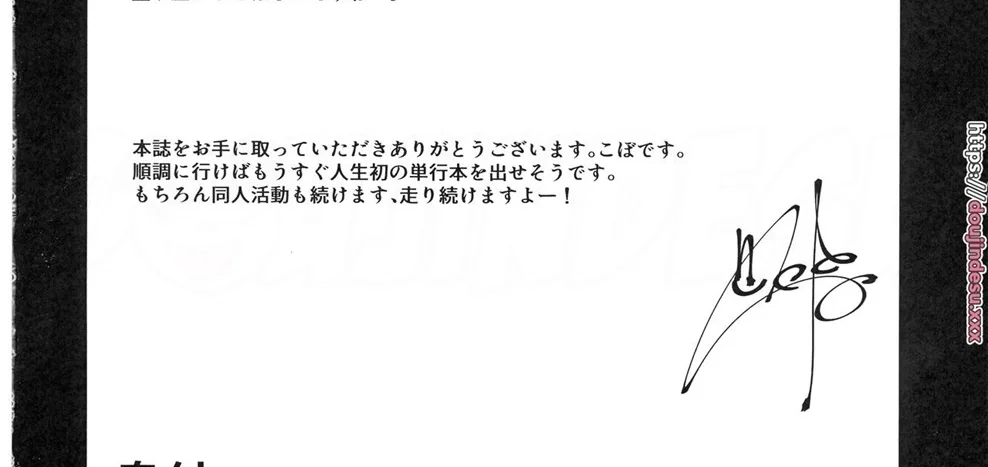 本誌をお手に取っていただきありがとうございます。こぼです。
順調に行けばもうすぐ人生初の単行本を出せそうです。
もちろん同人活動も続けます、走り続けますよー！
https://doujindesu.xxx